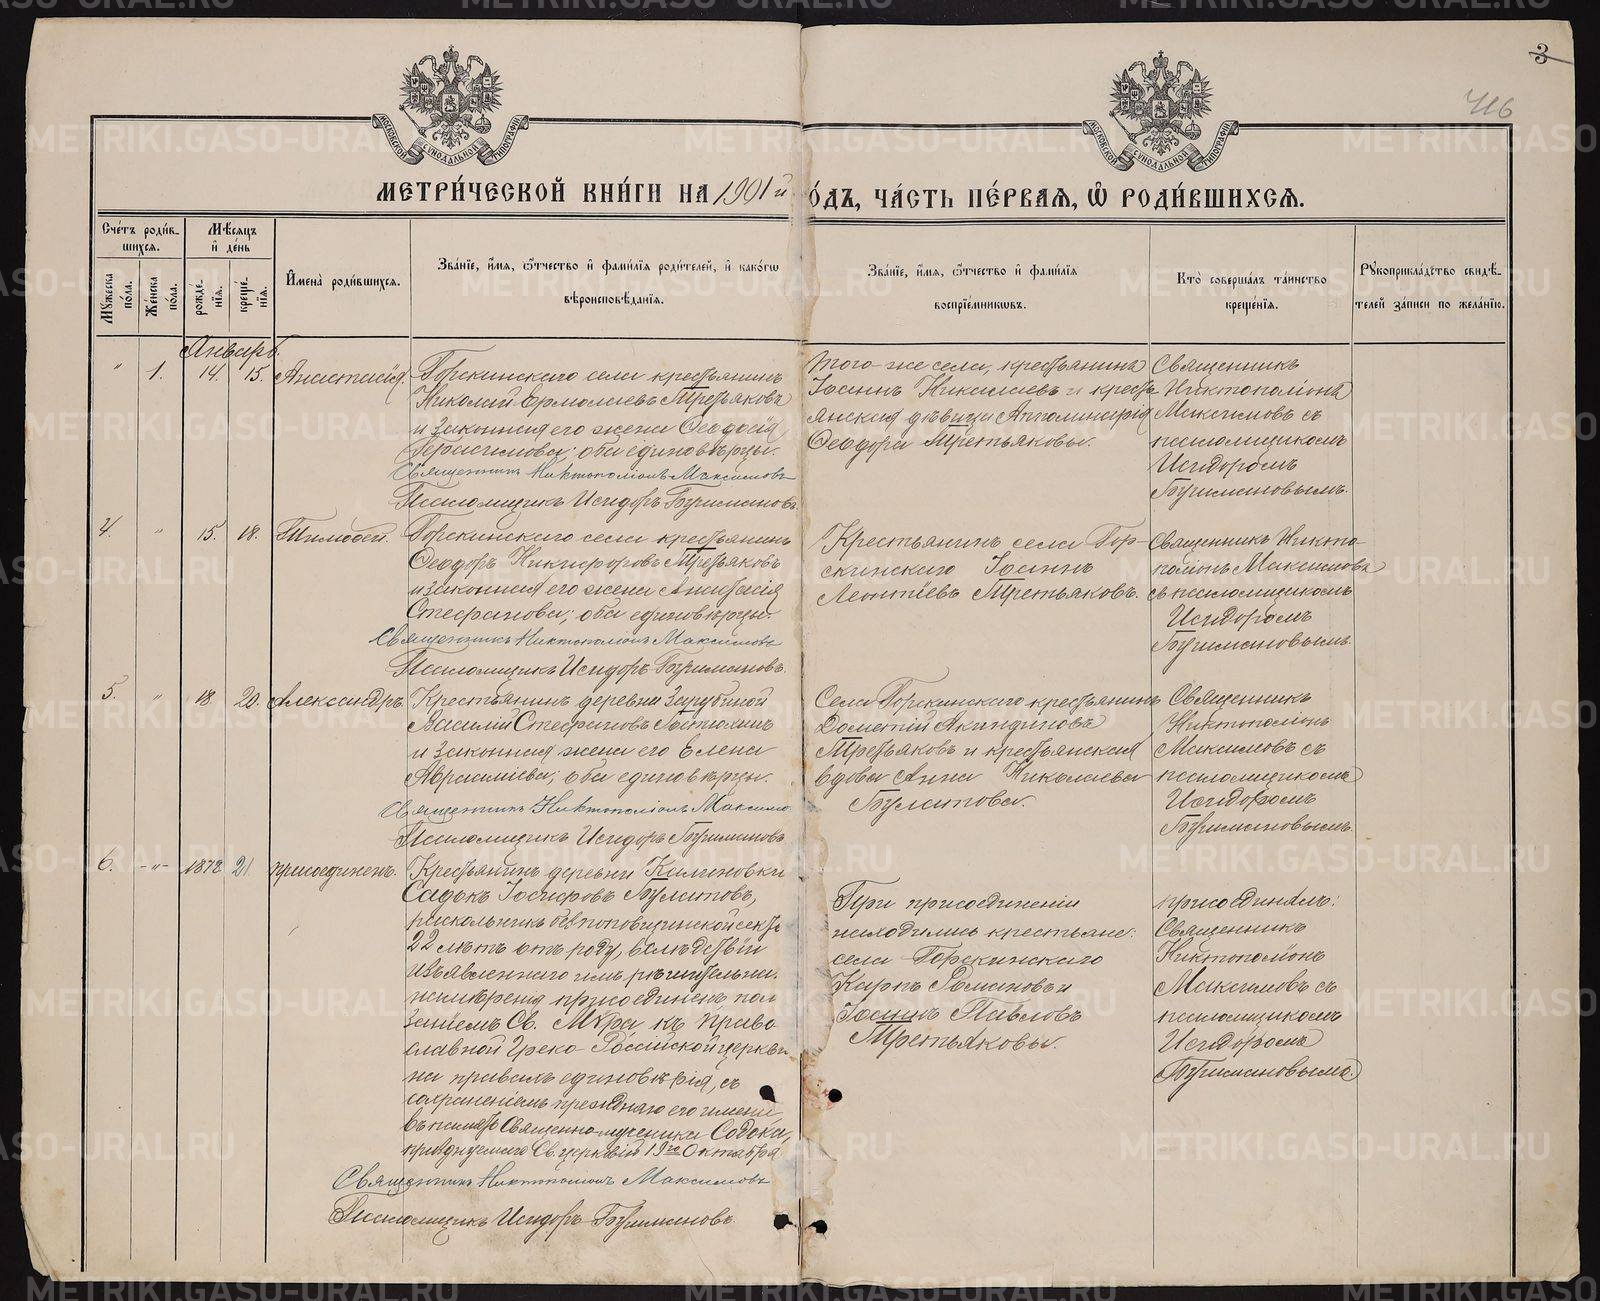 3
МОСКОВСКОЙ СѴНОДАЛЬНОЙ ТИПОГРАФІИ
МОСКОВСКОЙ СѴНОДАЛЬНОЙ ТИПОГРАФІИ
МЕТРИ́ЧЕСКОЙ КНИ́ГИ НА 1901 й
О́ДЪ, ЧА́СТЬ ПЕ́РВАЯ, Ѽ РОДИ́ВШИХСЯ.
Сче́тъ роди́в-
шихся.
Мѣ́сяцъ
и҆ де́нь
Мꙋжеска по́ла.
Же́нска по́ла.
рожде́-
нїѧ.
креще́-
нїѧ.
И҆мена̀ роди́вшихсѧ.
Зва́нїе, и҆́мѧ, ѻ҆́тчество и҆ фами́лїѧ роди́телей, и҆ како́гѡ
вѣроисповѣ́данїѧ.
Зва́нїе, и҆́мѧ, ѻ҆́тчество и҆ фами́лїѧ
воспрїе́мникѡвъ.
Кто̀ соверша́лъ та́инство
креще́нїѧ.
Рꙋкоприкла́дство свидѣ́-
телей за́писи по жела́нїю.
Январь.
" 1. 14. 15. Анастасія.
Горскинскаго села крестьянинъ
Николай Ермолаевъ Третьяковъ
и законная его жена Ѳеодосія
Герасимова; оба единовѣрцы.
Священникъ Никтополіонъ Максимовъ
Псаломщикъ Исидоръ Буримановъ
Того-же села, крестьянина
Іоаннъ Николаевъ и кресть-
янская дѣвица Апполинарія
Ѳеодора Третьяковы.
Священникъ
Никтополіонъ
Максимовъ съ
псаломщикомъ
Исидоромъ
Буримановымъ.
4. " 15. 18. Тимоѳей.
Горскинскаго села крестьянинъ
Ѳеодоръ Никифоровъ Третьяковъ
и законная его жена Анастасія
Стефанова; оба единовѣрцы.
Священникъ Никтополіонъ Максимовъ
Псаломщикъ Исидоръ Буримановъ.
Крестьянинъ села Гор-
скинскаго Іоаннъ
Леонтіевъ Третьяковъ.
Священникъ Никто-
поліонъ Максимовъ
съ псаломщикомъ
Исидоромъ
Буримановымъ.
5. " 18. 20. Александръ.
Крестьянинъ деревни
Василій Стефановъ
и законная жена его Елена
оба единовѣрцы.
Священникъ Никтополіонъ Максимо
Псаломщикъ Исидоръ Буримановъ
Села Горскинскаго крестьянинъ
Дометій Акиндиновъ
Третьяковъ и крестьянская
вдова Анна Николаева
Булатова.
Священникъ
Никтополіонъ
Максимовъ съ
псаломщикомъ
Исидоромъ
Буримановымъ.
6. -"- 1878 21 присоединенъ.
Крестьянинъ деревни Калиновки
Садокъ Іосифовъ Булатовъ,
раскольникъ безпоповщинской секты
22 лѣтъ отъ роду, вслѣдствіи
изъявленнаго имъ рѣшительна.
намѣренія присоединенъ пома
заніемъ Св. Мѵра, къ право
славной Греко-Россійской церкви
на правахъ единовѣрія, съ
сохраненіемъ прежняго его имени
въ память Священно-мученика Садока,
празднуемаго Св. церквію 19го Октября
Священникъ Никтополіонъ Максимовъ
Псаломщикъ Исидоръ Буримановъ.
При присоединеніи
находились крестьяне:
села Горскинскаго
Карпъ Романовъ и
Іоаннъ Павловъ
Третьяковы.
присоединялъ:
Священникъ
Никтополіонъ
Максимовъ съ
псаломщикомъ
Исидоромъ
Буримановымъ.
METRIKI.GASO-URAL.RU